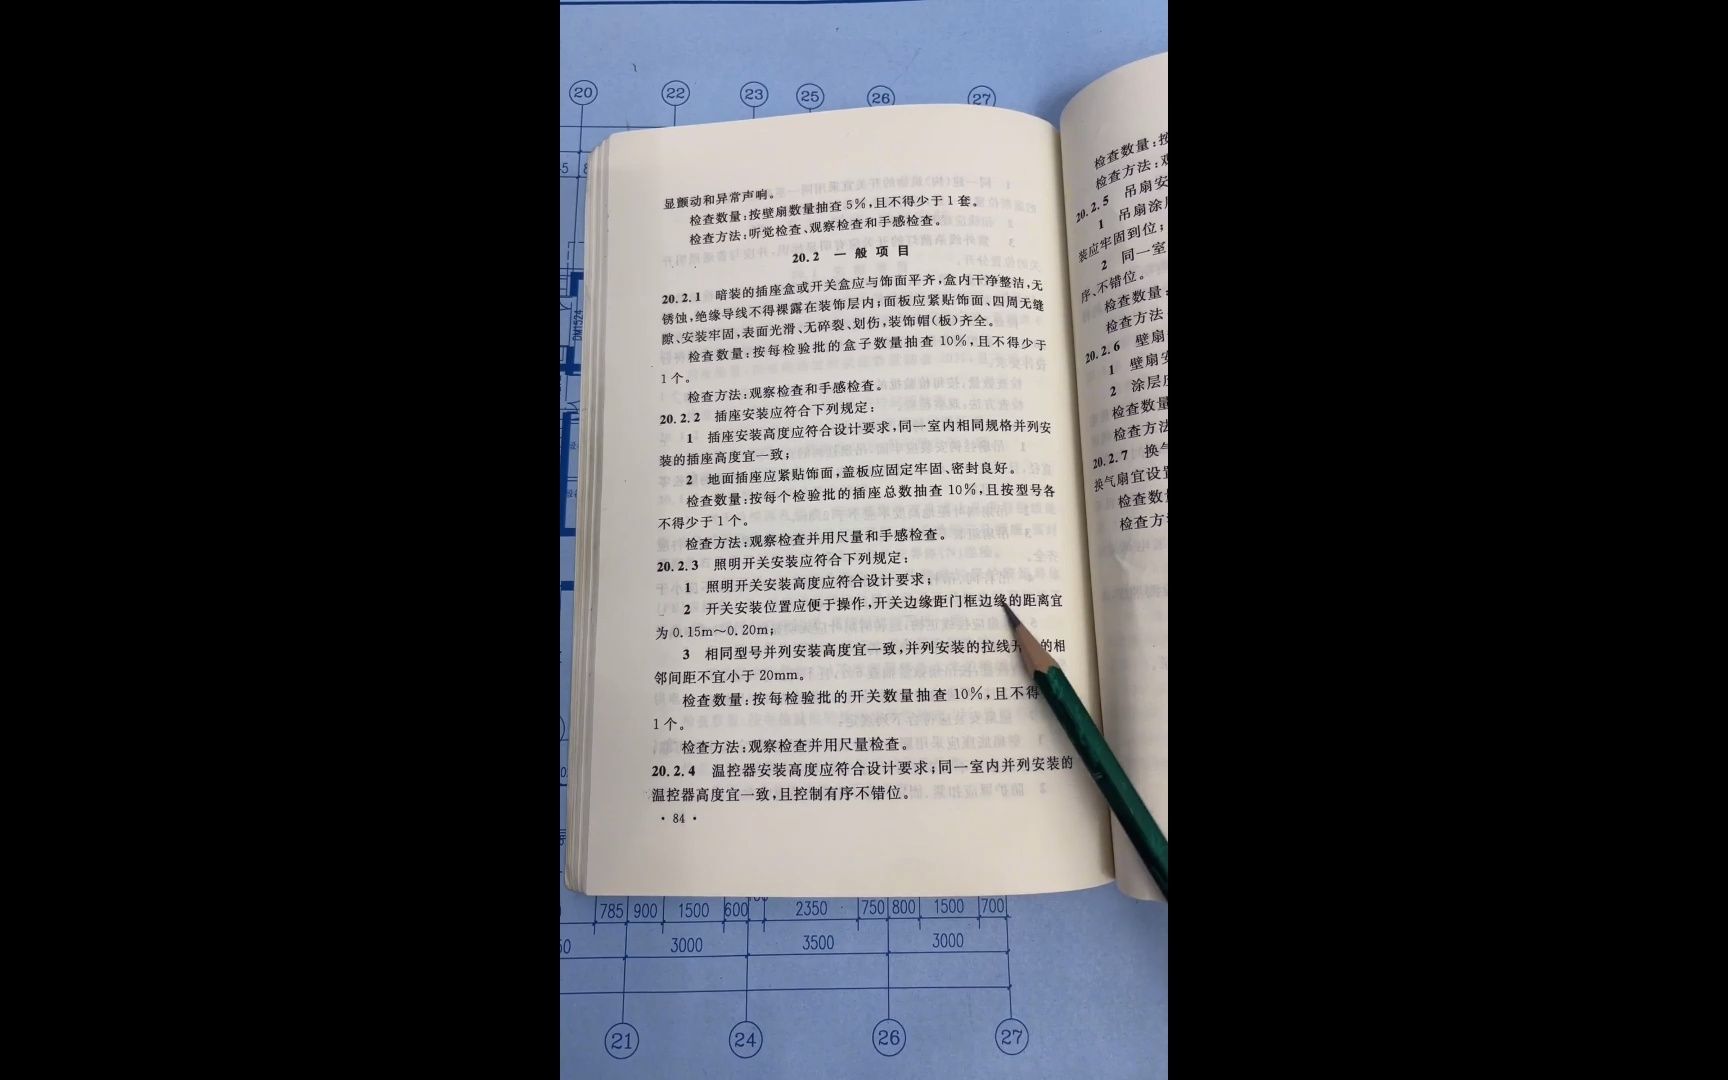 20 22 23 25 26 27
显颤动和异常声响。
检查数量:按壁扇数量抽查 5%,且不得少于 1 套。
检查方法:听觉检查、观察检查和手感检查。
20.2 一般项目
20.2.1 暗装的插座盒或开关盒应与饰面平齐,盒内干净整洁,无
锈蚀,绝缘导线不得裸露在装饰层内;面板应紧贴饰面、四周无缝
隙、安装牢固,表面光滑、无碎裂、划伤,装饰帽(板)齐全。
检查数量:按每检验批的盒子数量抽查 10%,且不得少于
1 个。
检查方法:观察检查和手感检查。
20.2.2 插座安装应符合下列规定:
1 插座安装高度应符合设计要求,同一室内相同规格并列安
装的插座高度宜一致;
2 地面插座应紧贴饰面,盖板应固定牢固、密封良好。
检查数量:按每个检验批的插座总数抽查 10%,且按型号各
不得少于 1 个。
检查方法:观察检查并用尺量和手感检查。
20.2.3 照明开关安装应符合下列规定:
1 照明开关安装高度应符合设计要求;
2 开关安装位置应便于操作,开关边缘距门框边缘的距离宜
为 0.15m～0.20m;
3 相同型号并列安装高度宜一致,并列安装的拉线开 的相
邻间距不宜小于 20mm。
检查数量:按每检验批的开关数量抽查 10%,且不得
1 个。
检查方法:观察检查并用尺量检查。
20.2.4 温控器安装高度应符合设计要求;同一室内并列安装的
温控器高度宜一致,且控制有序不错位。
· 84 ·
检查数量:按
检查方法:观
20.2.5 吊扇安
1 吊扇涂层
装应牢固到位;
2 同一室
序、不错位。
检查数量:
检查方法:
20.2.6 壁扇
1 壁扇安
2 涂层
检查数量
检查方法
20.2.7 换气
换气扇宜设置
检查数
检查方
DM1524
785 900 1500 600 2350 750 800 1500 700
3000 3500 3000
21 24 26 27